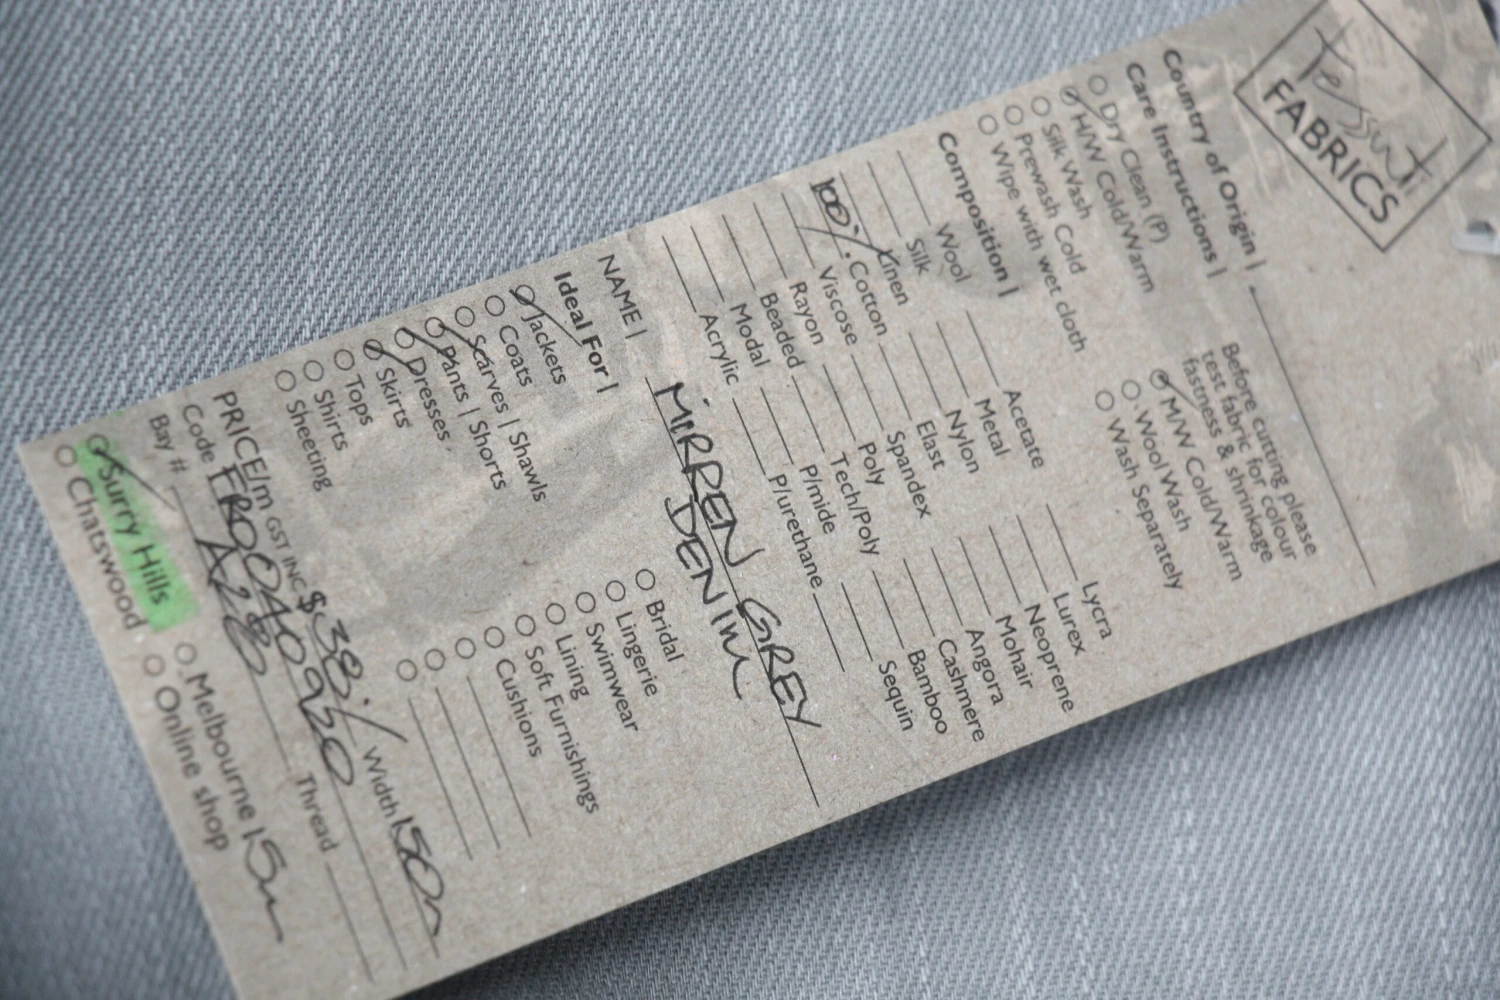 Tessuti
FABRICS
Country of Origin |
Care Instructions |
Before cutting please
test fabric for colour
fastness & shrinkage
Dry Clean (P)
H/W Cold/Warm
M/W Cold/Warm
Silk Wash
Wool Wash
Prewash Cold
Wash Separately
Wipe with wet cloth
Composition |
Wool Acetate Lycra
Silk Metal Lurex
Linen Nylon Neoprene
100% Cotton Elast Mohair
Viscose Spandex Angora
Rayon Poly Cashmere
Beaded Tech/Poly Bamboo
Modal P/mide Sequin
Acrylic P/urethane
NAME | MIRREN GREY
DENIM
Ideal For |
Jackets Bridal
Coats Lingerie
Scarves | Shawls Swimwear
Pants | Shorts Lining
Dresses Soft Furnishings
Skirts Cushions
Tops
Shirts
Sheeting
PRICE/m GST INC $38./ Width 150
Code FROCA0930
Bay # A28 Thread
Surry Hills Melbourne 15m
Chatswood Online shop